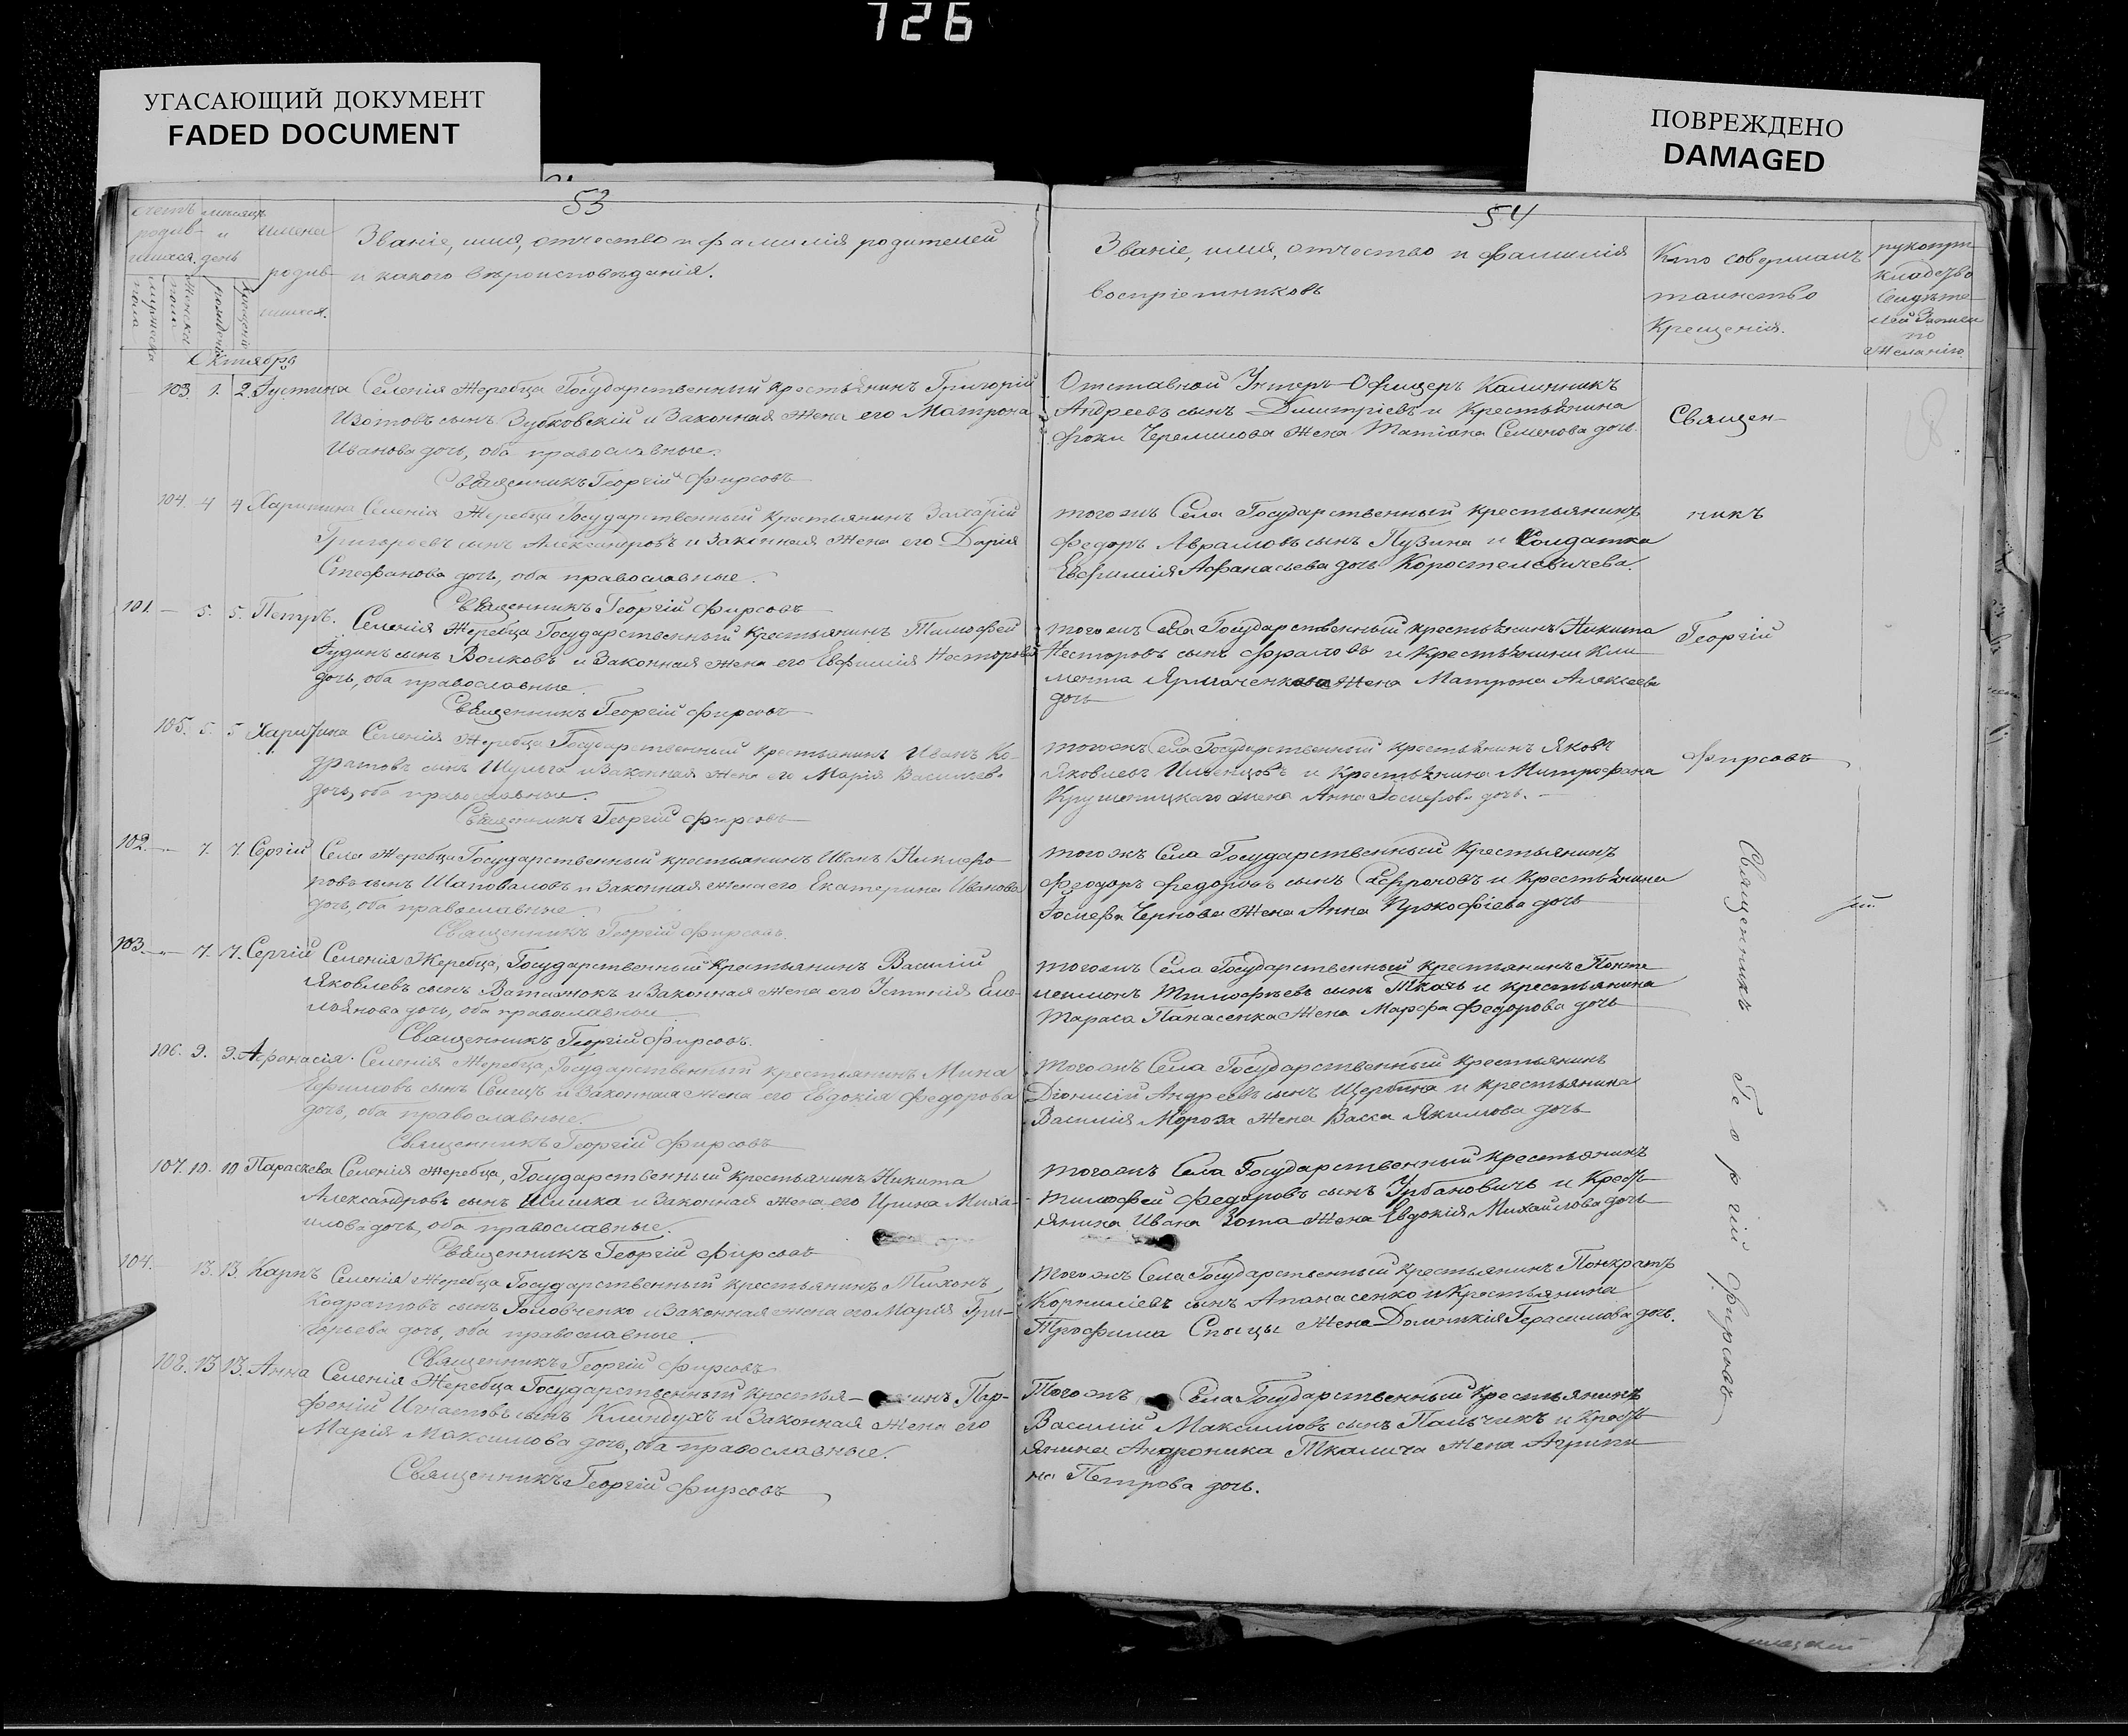 726
УГАСАЮЩИЙ ДОКУМЕНТ
FADED DOCUMENT
ПОВРЕЖДЕНО
DAMAGED
53
счетъ родив-шихся.
мѣсяцъ и день
имена родив-шихся.
Званіе, имя, отчество и фамилія родителей
и какого вѣроисповѣданія.
мужеска пола
женска пола
рожденія
крещенія
Октябрь
103. 1. 2. Іустина Селенія Жеребца Государственный крестьянинъ Григорій
Изотовъ сынъ Зубковскій и Законная жена его Матрона
Иванова дочь, оба православные.
Священникъ Георгій Фирсовъ
104. 4 4 Харитина Селенія Жеребца Государственный крестьянинъ Захарій
Григорьевъ сынъ Александровъ и Законная жена его Дарія
Стефанова дочь, оба православные.
Священникъ Георгій Фирсовъ
101. — 5. 5. Петръ. Селенія Жеребца Государственный Крестьянинъ Тимофей
Іудинъ сынъ Волковъ и Законная жена его Евфимія Несторова
дочь, оба православные.
Священникъ Георгій Фирсовъ
105. 5. 5 Харитина Селенія Жеребца Государственный крестьянинъ Иванъ Ко-
дратовъ сынъ Шульга и Законная жена его Марія Васильева
дочь, оба православные.
Священникъ Георгій Фирсовъ
102. — 7. 7. Сергій Села Жеребца Государственный крестьянинъ Иванъ Никифо-
ровъ сынъ Шаповаловъ и Законная жена его Екатерина Иванова
дочь, оба православные.
Священникъ Георгій Фирсовъ.
103. — 7. 7. Сергій Селенія Жеребца, Государственный крестьянинъ Василій
Яковлевъ сынъ Ватажокъ и Законная жена его Устинія Еме-
льянова дочь, оба православные
Священникъ Георгій Фирсовъ.
106. 9. 9. Афанасія. Селенія Жеребца, Государственный крестьянинъ Мина
Ефимовъ сынъ и Законная жена его Евдокія Федорова
дочь, оба православные.
Священникъ Георгій Фирсовъ
107. 10. 10 Параскева Селенія Жеребца, Государственный крестьянинъ Никита
Александровъ сынъ Шишка и Законная жена его Ирина Миха-
илова дочь, оба православные.
Священникъ Георгій Фирсовъ
104. 13. 13. Карпъ Селенія Жеребца Государственный крестьянинъ Тихонъ
Кодратовъ сынъ Головченко и Законная жена его Марія Гри-
горьева дочь, оба православные.
Священникъ Георгій Фирсовъ
108. 13 13. Анна Селенія Жеребца Государственный крестья-нинъ Пар-
феній Игнатовъ сынъ Клиндухъ и Законная жена его
Марія Максимова дочь, оба православные.
Священникъ Георгій Фирсовъ
54
Званіе, имя, отчество и фамилія
воспріемниковъ
Кто совершалъ
таинство
Крещенія.
рукопри-
кладство
свидѣте-
лей записи
по
желанію.
Отставной Унтеръ-Офицеръ Калинникъ
Андреевъ сынъ Димитріевъ и Крестьянина
Фоки Черемисова жена Татіана Семенова дочь.
тогожъ Села Государственный крестьянинъ
Федоръ Аврамовъ сынъ Пузина и Солдатка
Евфимія Афанасьева дочь Коростелевичева.
тогожъ Села Государственный крестьянинъ Никита
Несторовъ сынъ Фраловъ и крестьянина Кли-
мента жена Матрона Алексеева
дочь
тогожъ Села Государственный крестьянинъ Яковъ
Яковлевъ и Крестьянина Митрофана
Крушеницкаго жена Анна Іосифова дочь. —
тогожъ Села Государственный Крестьянинъ
Феодоръ Федоровъ сынъ и Крестьянина
Іосифа Чернова жена Анна Прокофіева дочь
тогожъ Села Государственный крестьянинъ Понте-
леимонъ Тимофѣевъ сынъ Ткачъ и крестьянина
Тараса Панасенка жена Марфа Федорова дочь
тогожъ Села Государственный крестьянинъ
Діонисій Андреевъ сынъ Щербина и крестьянина
Василія Мороза жена Васса Якимова дочь
тогожъ Села Государственный крестьянинъ
Тимофей Федоровъ сынъ Урбановичъ и Кресть-
янина Ивана Зота жена Евдокія Михайлова дочь
тогожъ Села Государственный крестьянинъ Понкратъ
Корниліевъ сынъ Апанасенко и Крестьянина
Трофима Спицы жена Домникія Герасимова дочь.
Тогожъ Села Государственный крестьянинъ
Василій Максимовъ сынъ Пальчикъ и Кресть-
янина Андроника Ткалича жена Агрипи-
на Петрова дочь.
Священ-
никъ
Георгій
Фирсовъ
Священникъ Георгій Фирсовъ